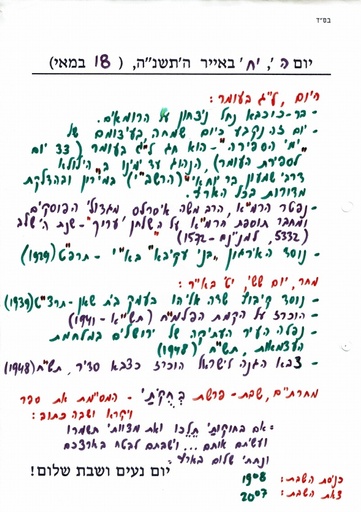 בס״ד
יום ה', י"ח באייר ה'תשנ"ה, ( 18 במאי)
היום, ל"ג בעומר:
- בר-כוכבא נחל ניצחון על הרומאים.
- יום זה נקבע כיום שמחה בעיצומם של
"ימי הספירה" - הוא חג ל"ג בעומר (33 יום
לספירת העומר), הנהוג עד ימינו ב"הילולא
דרבי שמעון בר יוחאי" (הרשב"י) במירון ובהדלקת
מדורות בכל הארץ.
- נפטר הרמ"א, הרב משה איסרלס מגדולי הפוסקים
ומחבר תוספת הרמ"א על השלחן "עריך" - שנת ה'שלב
(5332, למנינם - 1572)
- נוסד האירגון "בני עקיבא" בא"י - תרפ"ט (1929)
מחר, יום שישי, י"ט באייר:
- נוסד קיבוץ שדה אליהו בעמק בית שאן - תרצ"ט (1939)
- הוכרז על הקמת הפלמ"ח (תש"א - 1941)
- נפלה העיר העתיקה של ירושלים במלחמת
העצמאות, תש"ח (1948)
- צבא הגנה לישראל הוכרז כצבא סדיר, תש"ח (1948)
מחרתיים, שבת - פרשת בְּחֻקֹּתַי - המסיימת את ספר
ויקרא ושבה כתוב:
"אם בחוקותי תלכו ואת מצוותי תשמרו
ועשיתם אותם ... וישבתם לבטח בארצכם
ונתתי שלום בארץ"
יום נעים ושבת שלום!
כניסת השבת: 19:08
צאת השבת: 20:07